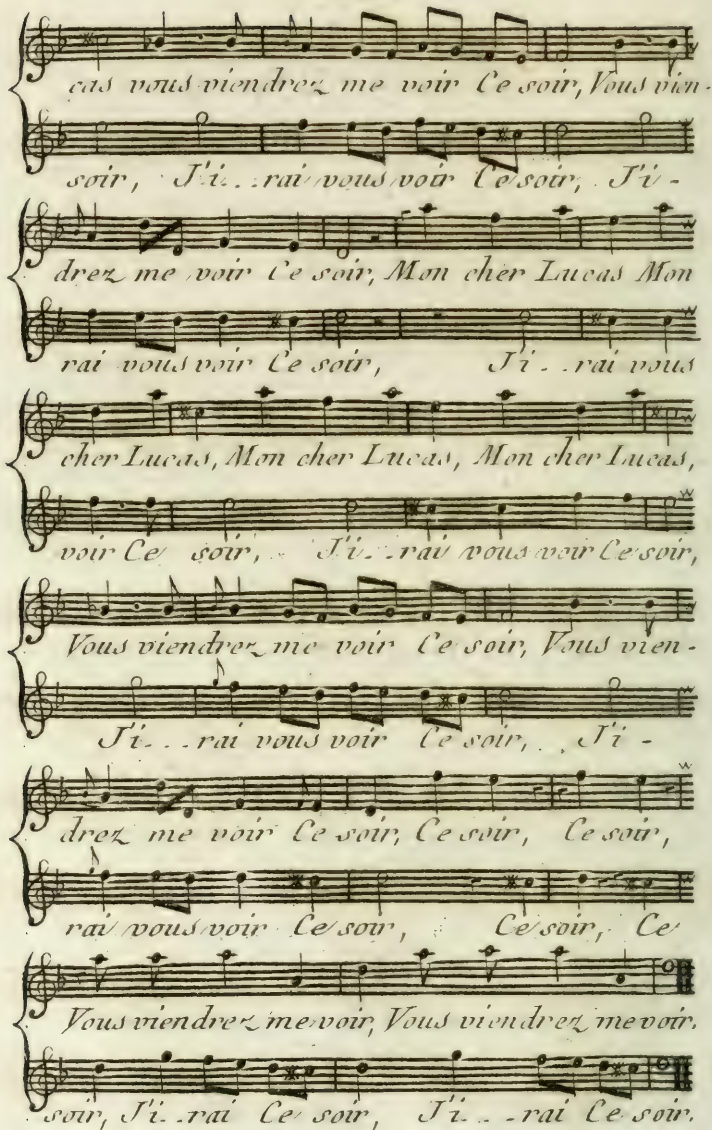 cas vous viendrez me voir Ce soir, Vous vien-
soir, J'i...rai vous voir Ce soir, J'i-
drez me voir Ce soir, Mon cher Lucas Mon
rai vous voir Ce soir, J'i...rai vous
cher Lucas, Mon cher Lucas, Mon cher Lucas,
voir Ce soir, J'i...rai vous voir Ce soir,
Vous viendrez me voir Ce soir, Vous vien-
J'i...rai vous voir Ce soir, J'i-
drez me voir Ce soir, Ce soir, Ce soir,
rai vous voir Ce soir, Ce soir, Ce
Vous viendrez me voir, Vous viendrez me voir.
soir, J'i...rai Ce soir, J'i...rai Ce soir.